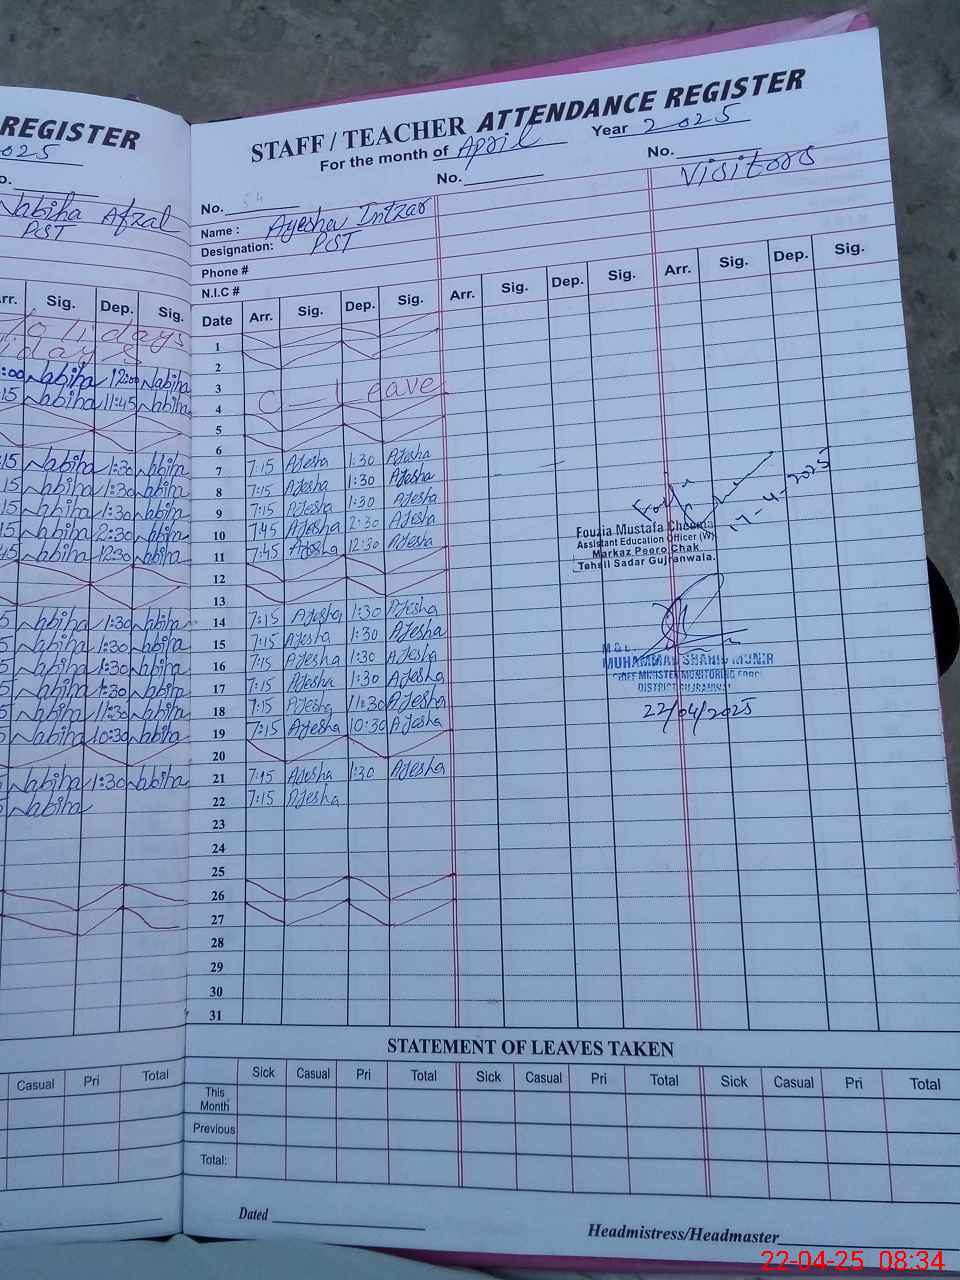 REGISTER
2025
Nabiha Afzal
PST
Arr. Sig. Dep. Sig.
Holidays
:00 Nabiha 12:00 Nabiha
:15 Nabiha 11:45 Nabiha
:15 Nabiha 1:30 Nabiha
:15 Nabiha 1:30 Nabiha
:15 Nabiha 1:30 Nabiha
:15 Nabiha 2:30 Nabiha
:45 Nabiha 12:30 Nabiha
5 Nabiha 1:30 Nabiha
5 Nabiha 1:30 Nabiha
5 Nabiha 1:30 Nabiha
5 Nabiha 1:30 Nabiha
5 Nabiha 11:30 Nabiha
5 Nabiha 10:30 Nabiha
5 Nabiha 1:30 Nabiha
5 Nabiha
Casual Pri Total
STAFF / TEACHER ATTENDANCE REGISTER
For the month of April Year 2025
No. No. No.
Visitors
Name : Ayesha Intzar
Designation: PST
Phone #
N.I.C #
Date Arr. Sig. Dep. Sig. Arr. Sig. Dep. Sig. Arr. Sig. Dep. Sig.
1
2
3
C - Leave
4
5
6
7 7:15 Ayesha 1:30 Ayesha
8 7:15 Ayesha 1:30 Ayesha
9 7:15 Ayesha 1:30 Ayesha
10 7:45 Ayesha 2:30 Ayesha
11 7:45 Ayesha 12:30 Ayesha
12
13
14 7:15 Ayesha 1:30 Ayesha
15 7:15 Ayesha 1:30 Ayesha
16 7:15 Ayesha 1:30 Ayesha
17 7:15 Ayesha 1:30 Ayesha
18 7:15 Ayesha 11:30 Ayesha
19 7:15 Ayesha 10:30 Ayesha
20
21 7:15 Ayesha 1:30 Ayesha
22 7:15 Ayesha
23
24
25
26
27
28
29
30
31
17-4-2025
Fouzia Mustafa Cheema
Assistant Education Officer (W)
Markaz Peero Chak
Tehsil Sadar Gujranwala.
MUHAMMAD SHAHID MUNIR
CHIEF MINISTER MONITORING FORCE
DISTRICT GUJRANWALA
22/04/2025
STATEMENT OF LEAVES TAKEN
Sick Casual Pri Total Sick Casual Pri Total Sick Casual Pri Total
This Month
Previous
Total:
Dated
Headmistress/Headmaster
22-04-25 08:34